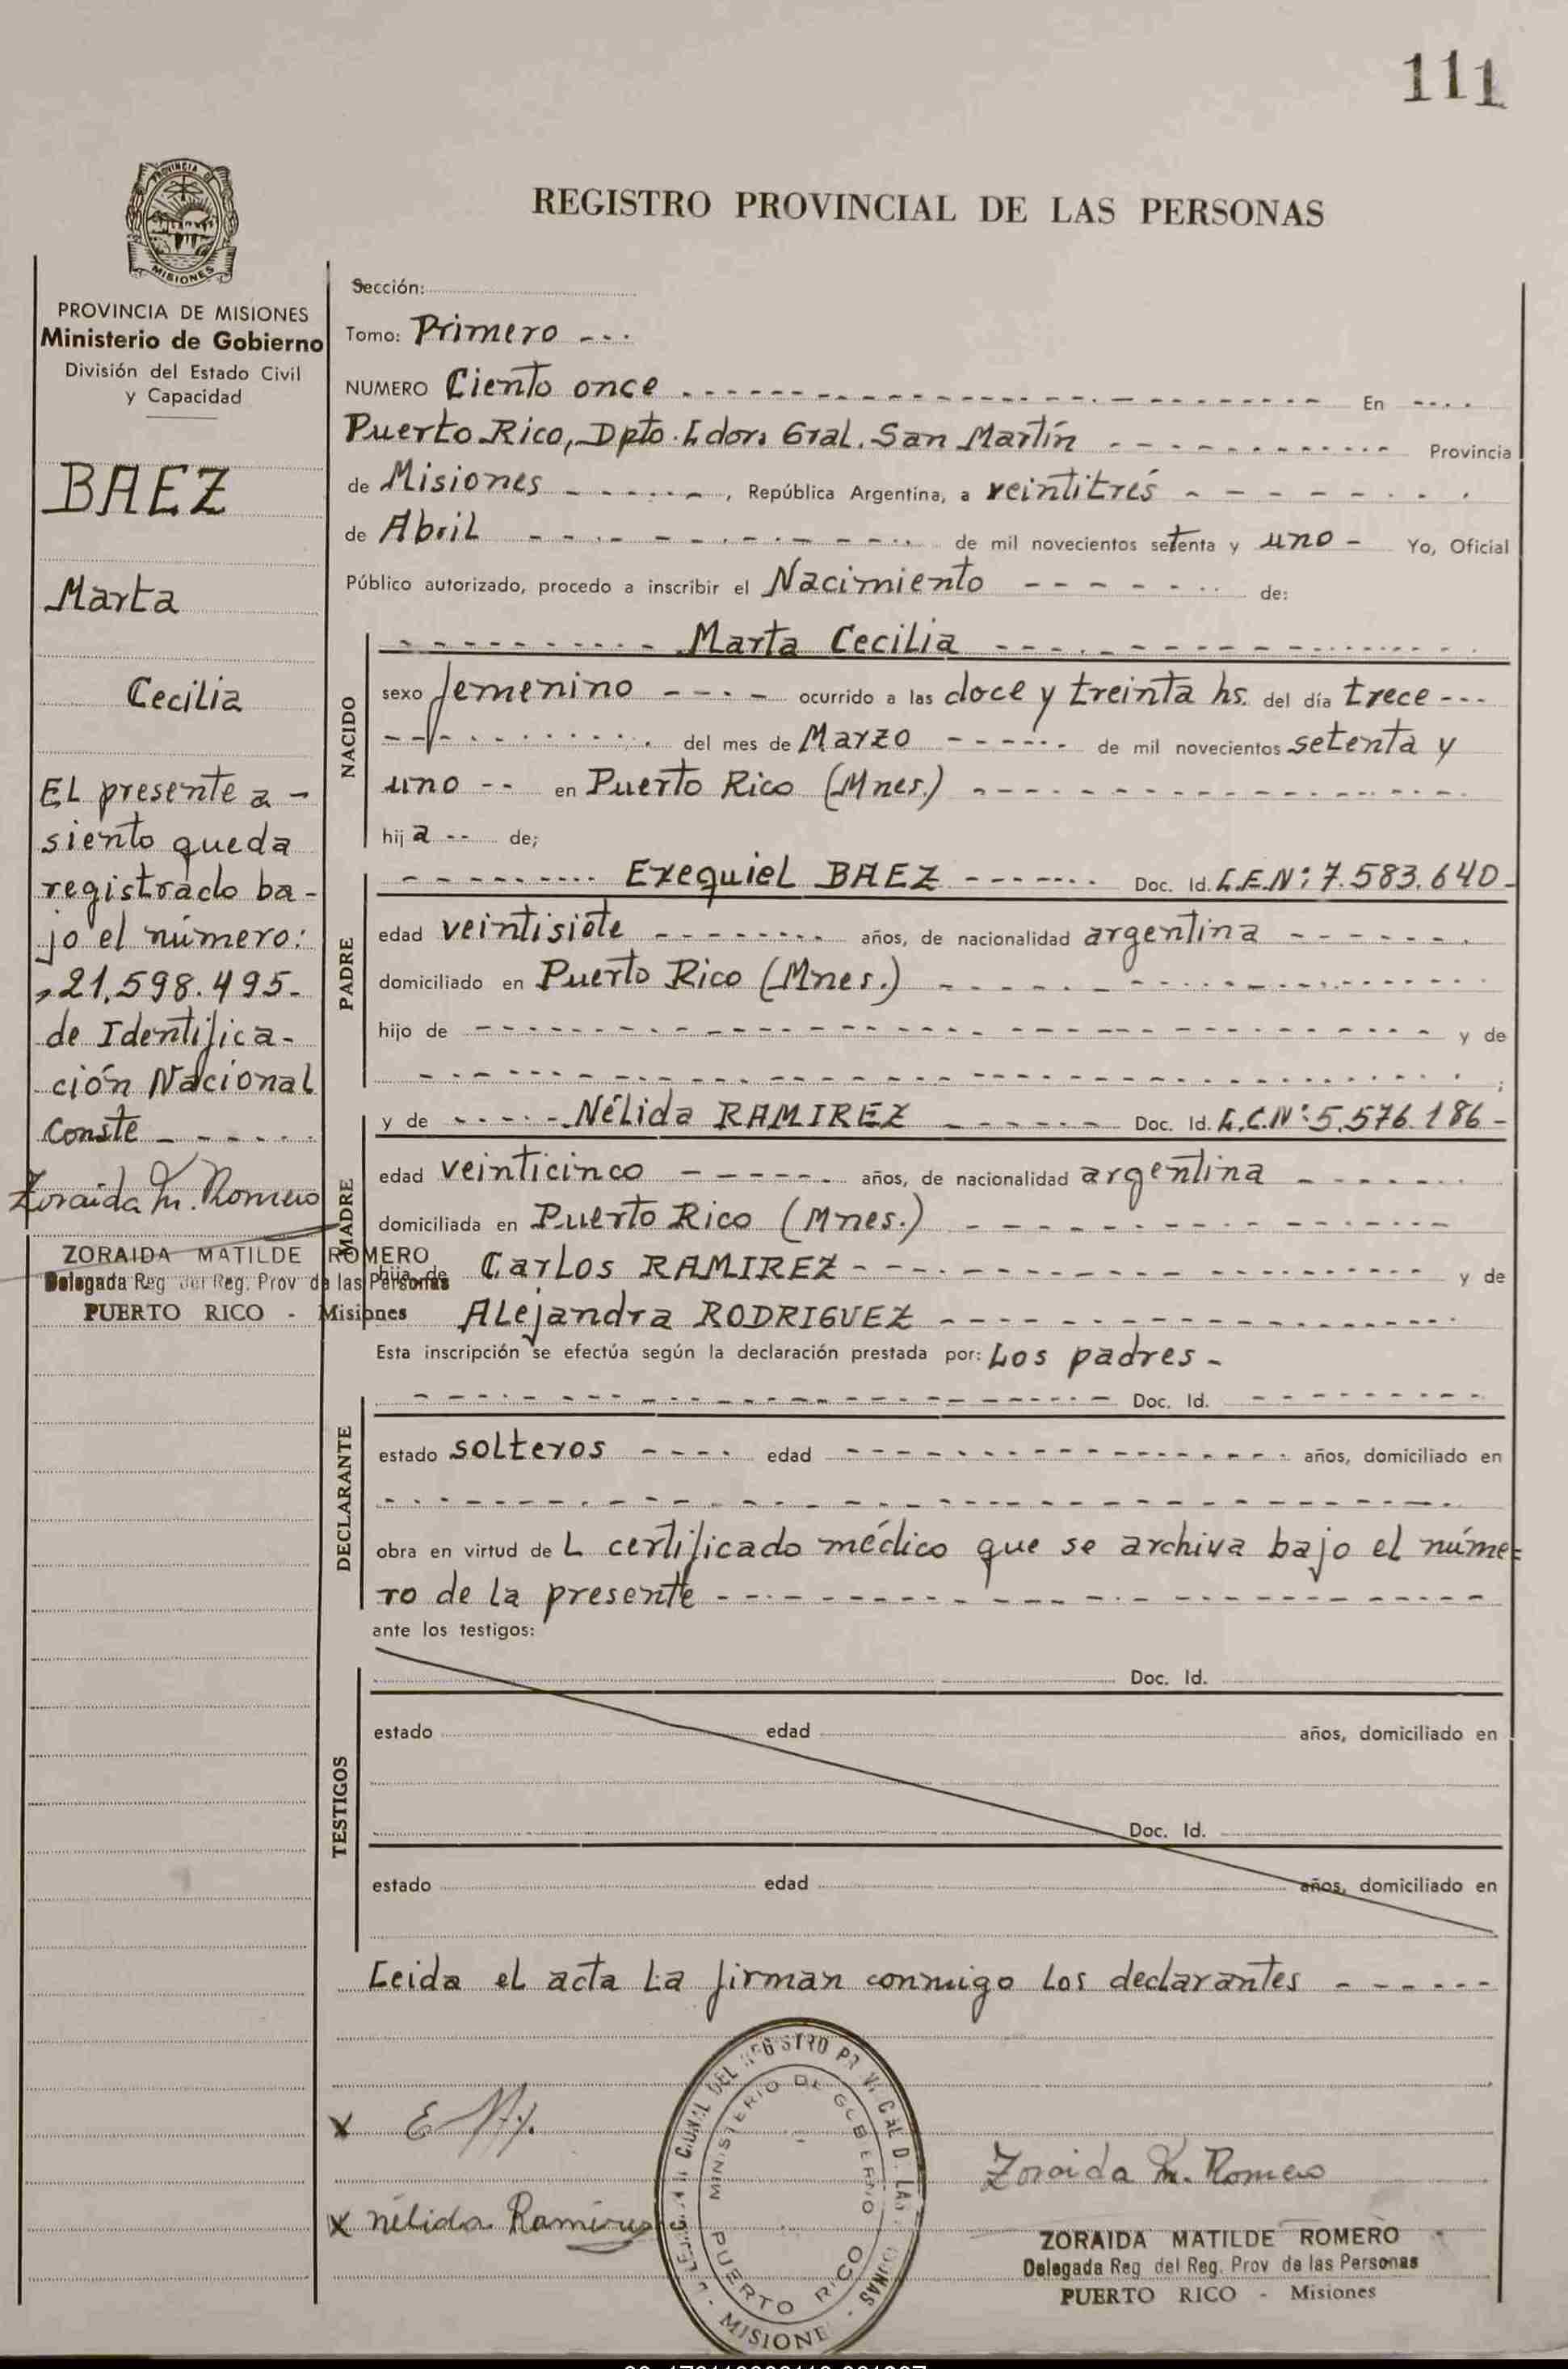 111
PROVINCIA DE
MISIONES
REGISTRO PROVINCIAL DE LAS PERSONAS
PROVINCIA DE MISIONES
Ministerio de Gobierno
División del Estado Civil
y Capacidad
BAEZ
Marta
Cecilia
EL presente a-
siento queda
registrado ba-
jo el número:
21.598.495-
de Identifica-
ción Nacional
Conste
Zoraida M. Romero
ZORAIDA MATILDE ROMERO
Delegada Reg del Reg. Prov de las Personas
PUERTO RICO - Misiones
Sección:
Tomo: Primero
NUMERO Ciento once En
Puerto Rico, Dpto. Ldor. Gral. San Martín Provincia
de Misiones, República Argentina, a veintitrés
de Abril de mil novecientos setenta y uno - Yo, Oficial
Público autorizado, procedo a inscribir el Nacimiento de:
Marta Cecilia
NACIDO
sexo femenino ocurrido a las doce y treinta hs. del día trece
del mes de Marzo de mil novecientos setenta y
uno -- en Puerto Rico (Mnes.)
hija -- de;
Exequiel BAEZ Doc. Id. L.E.Nº: 7.583.640-
PADRE
edad veintisiete años, de nacionalidad argentina
domiciliado en Puerto Rico (Mnes.)
hijo de y de
;
y de Nélida RAMIREZ Doc. Id. L.C.Nº: 5.576.186-
MADRE
edad veinticinco años, de nacionalidad argentina
domiciliada en Puerto Rico (Mnes.)
hija de Carlos RAMIREZ y de
ALejandra RODRIGUEZ
Esta inscripción se efectúa según la declaración prestada por: Los padres -
Doc. Id.
DECLARANTE
estado solteros edad años, domiciliado en
obra en virtud de L certificado médico que se archiva bajo el núme=
ro de la presente
ante los testigos:
Doc. Id.
TESTIGOS
estado edad años, domiciliado en
Doc. Id.
estado edad años, domiciliado en
Leida el acta La firman conmigo Los declarantes
x
x nélida Ramírez
MINISTERIO DE GOBIERNO
PUERTO RICO
Zoraida M. Romero
ZORAIDA MATILDE ROMERO
Delegada Reg del Reg. Prov de las Personas
PUERTO RICO - Misiones